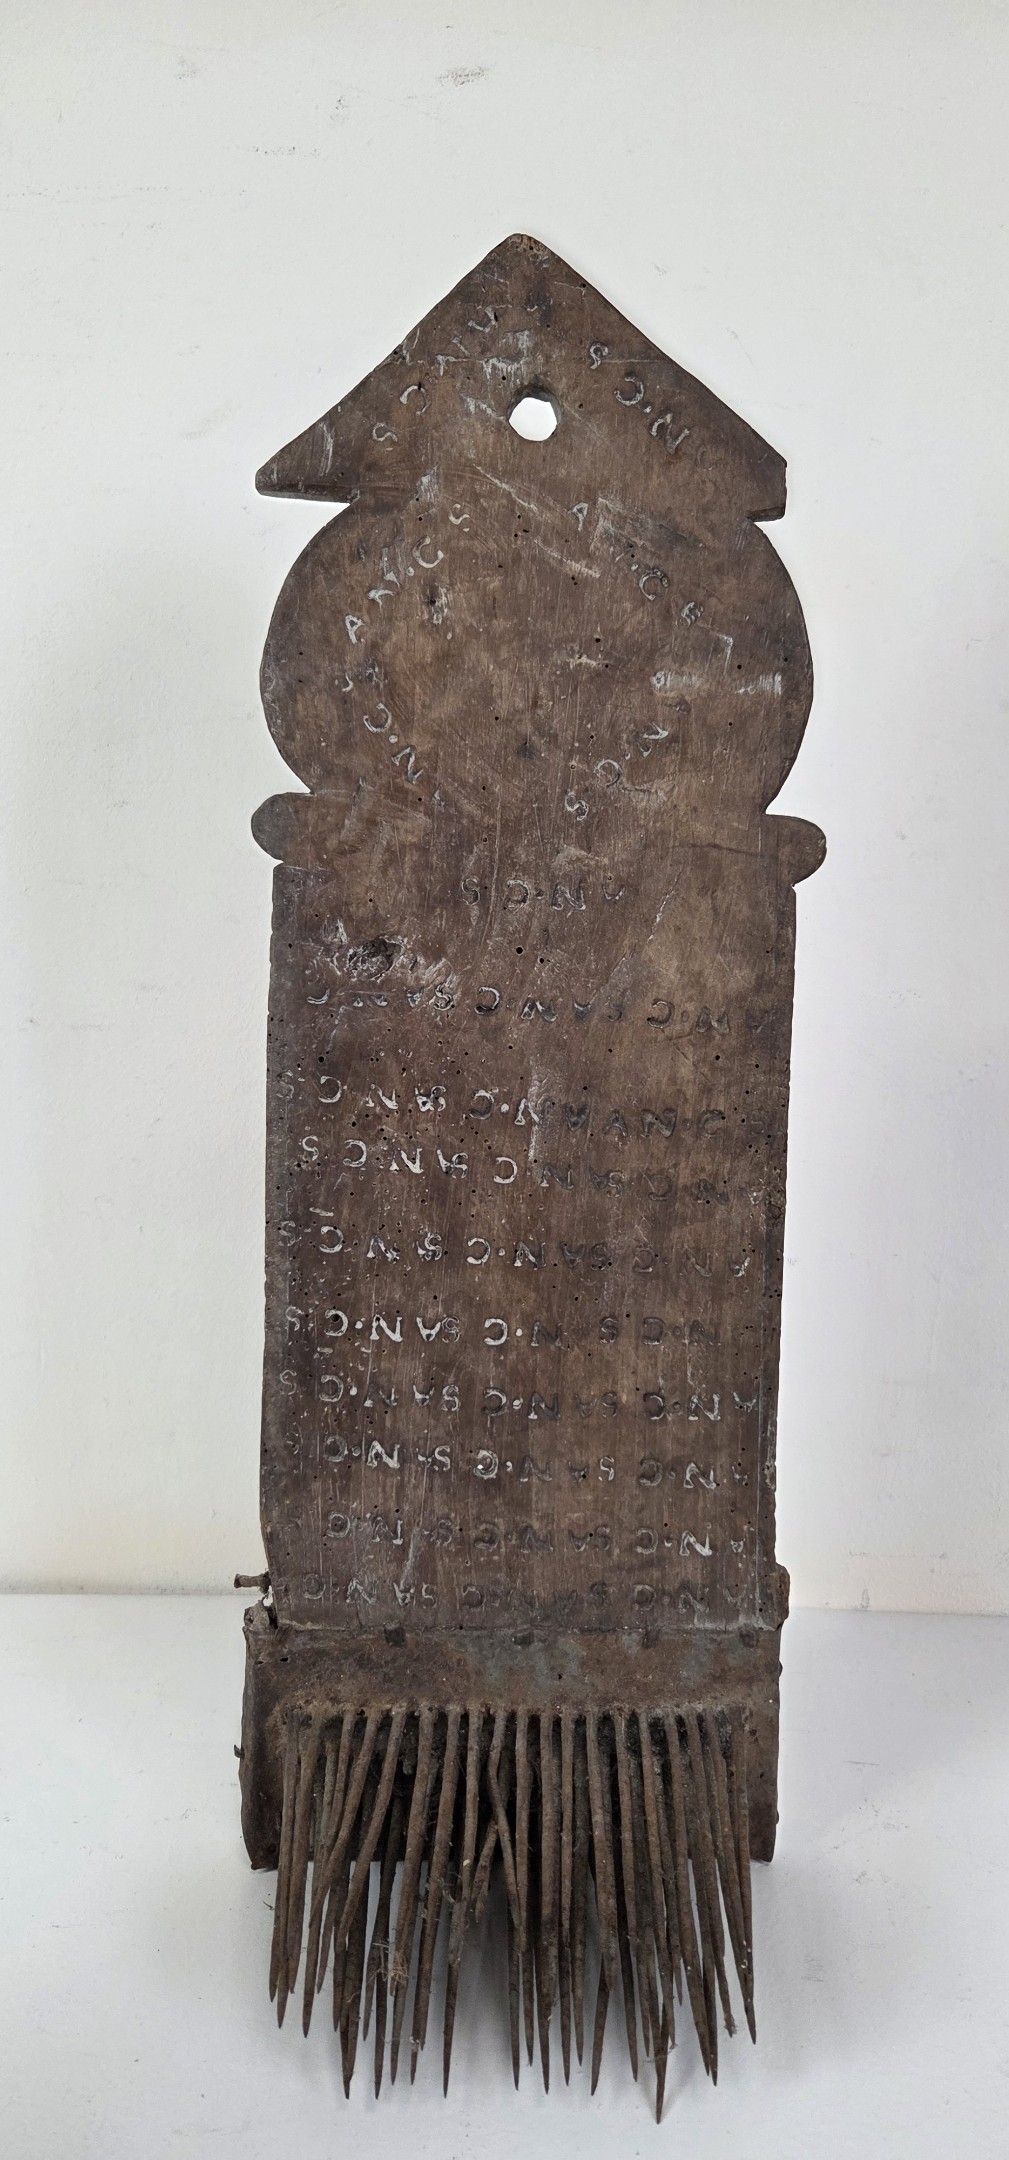 AN·CS AN·CS AN·CS AN·C
AN·CS AN·CS AN·CS AN·CS
AN·CS AN·CS AN·CS AN·CS
AN·CS AN·CS AN·CS AN·CS
N·CS N·CS AN·CS AN·CS
AN·CS AN·CS N·CS N·CS
AN·CS AN·CS AN·CS AN·CS
AN·CS AN·CS AN·CS
AN·CS AN·CS AN·CS AN·C
AN·CS
N·CS
N·CS
AN·CS
AN·CS
N·CS
AN·CS